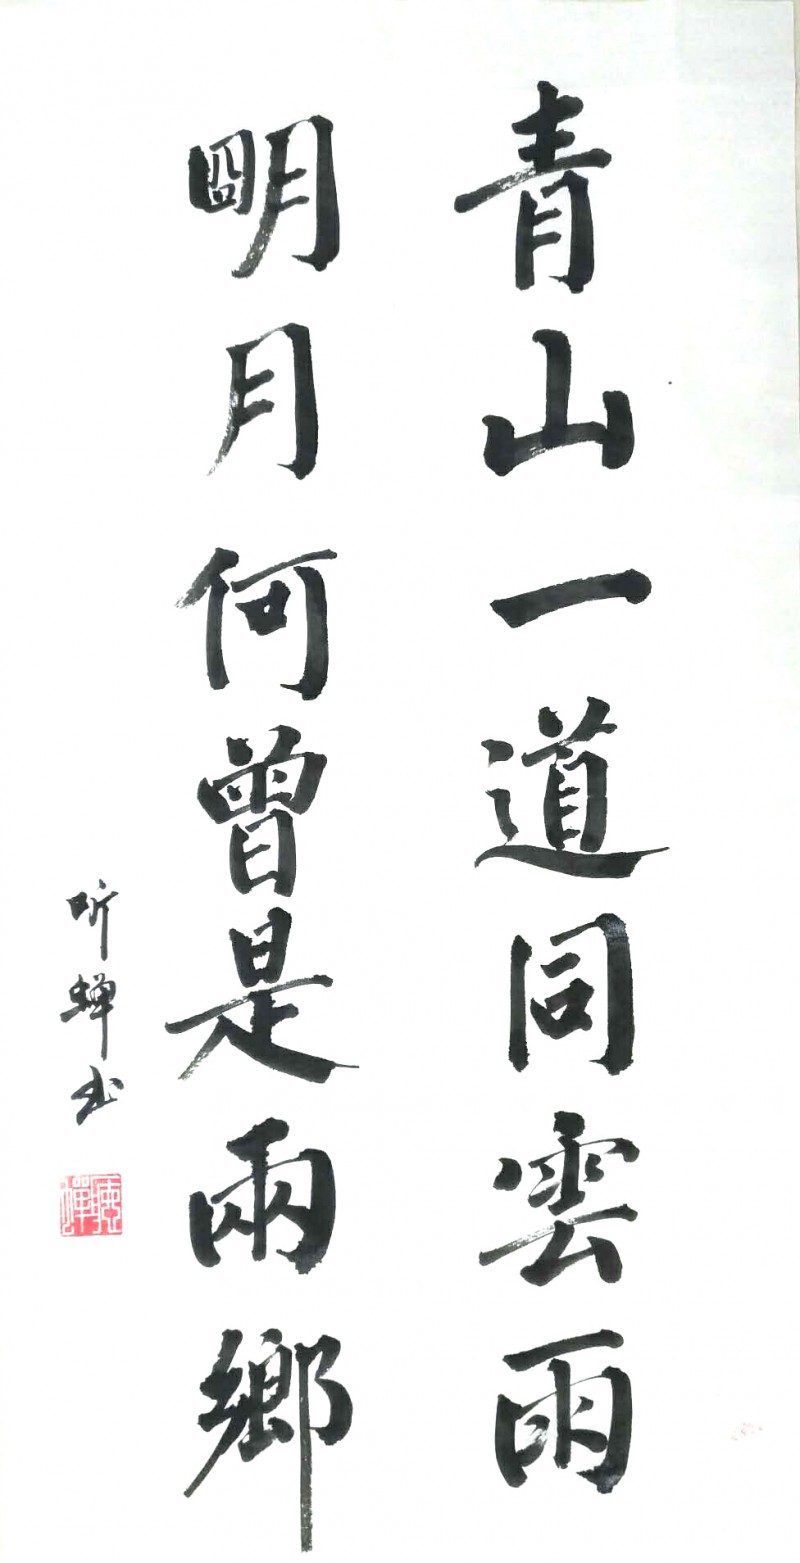 青山一道同雲雨
明月何曾是兩鄉
听蝉书
聽蟬